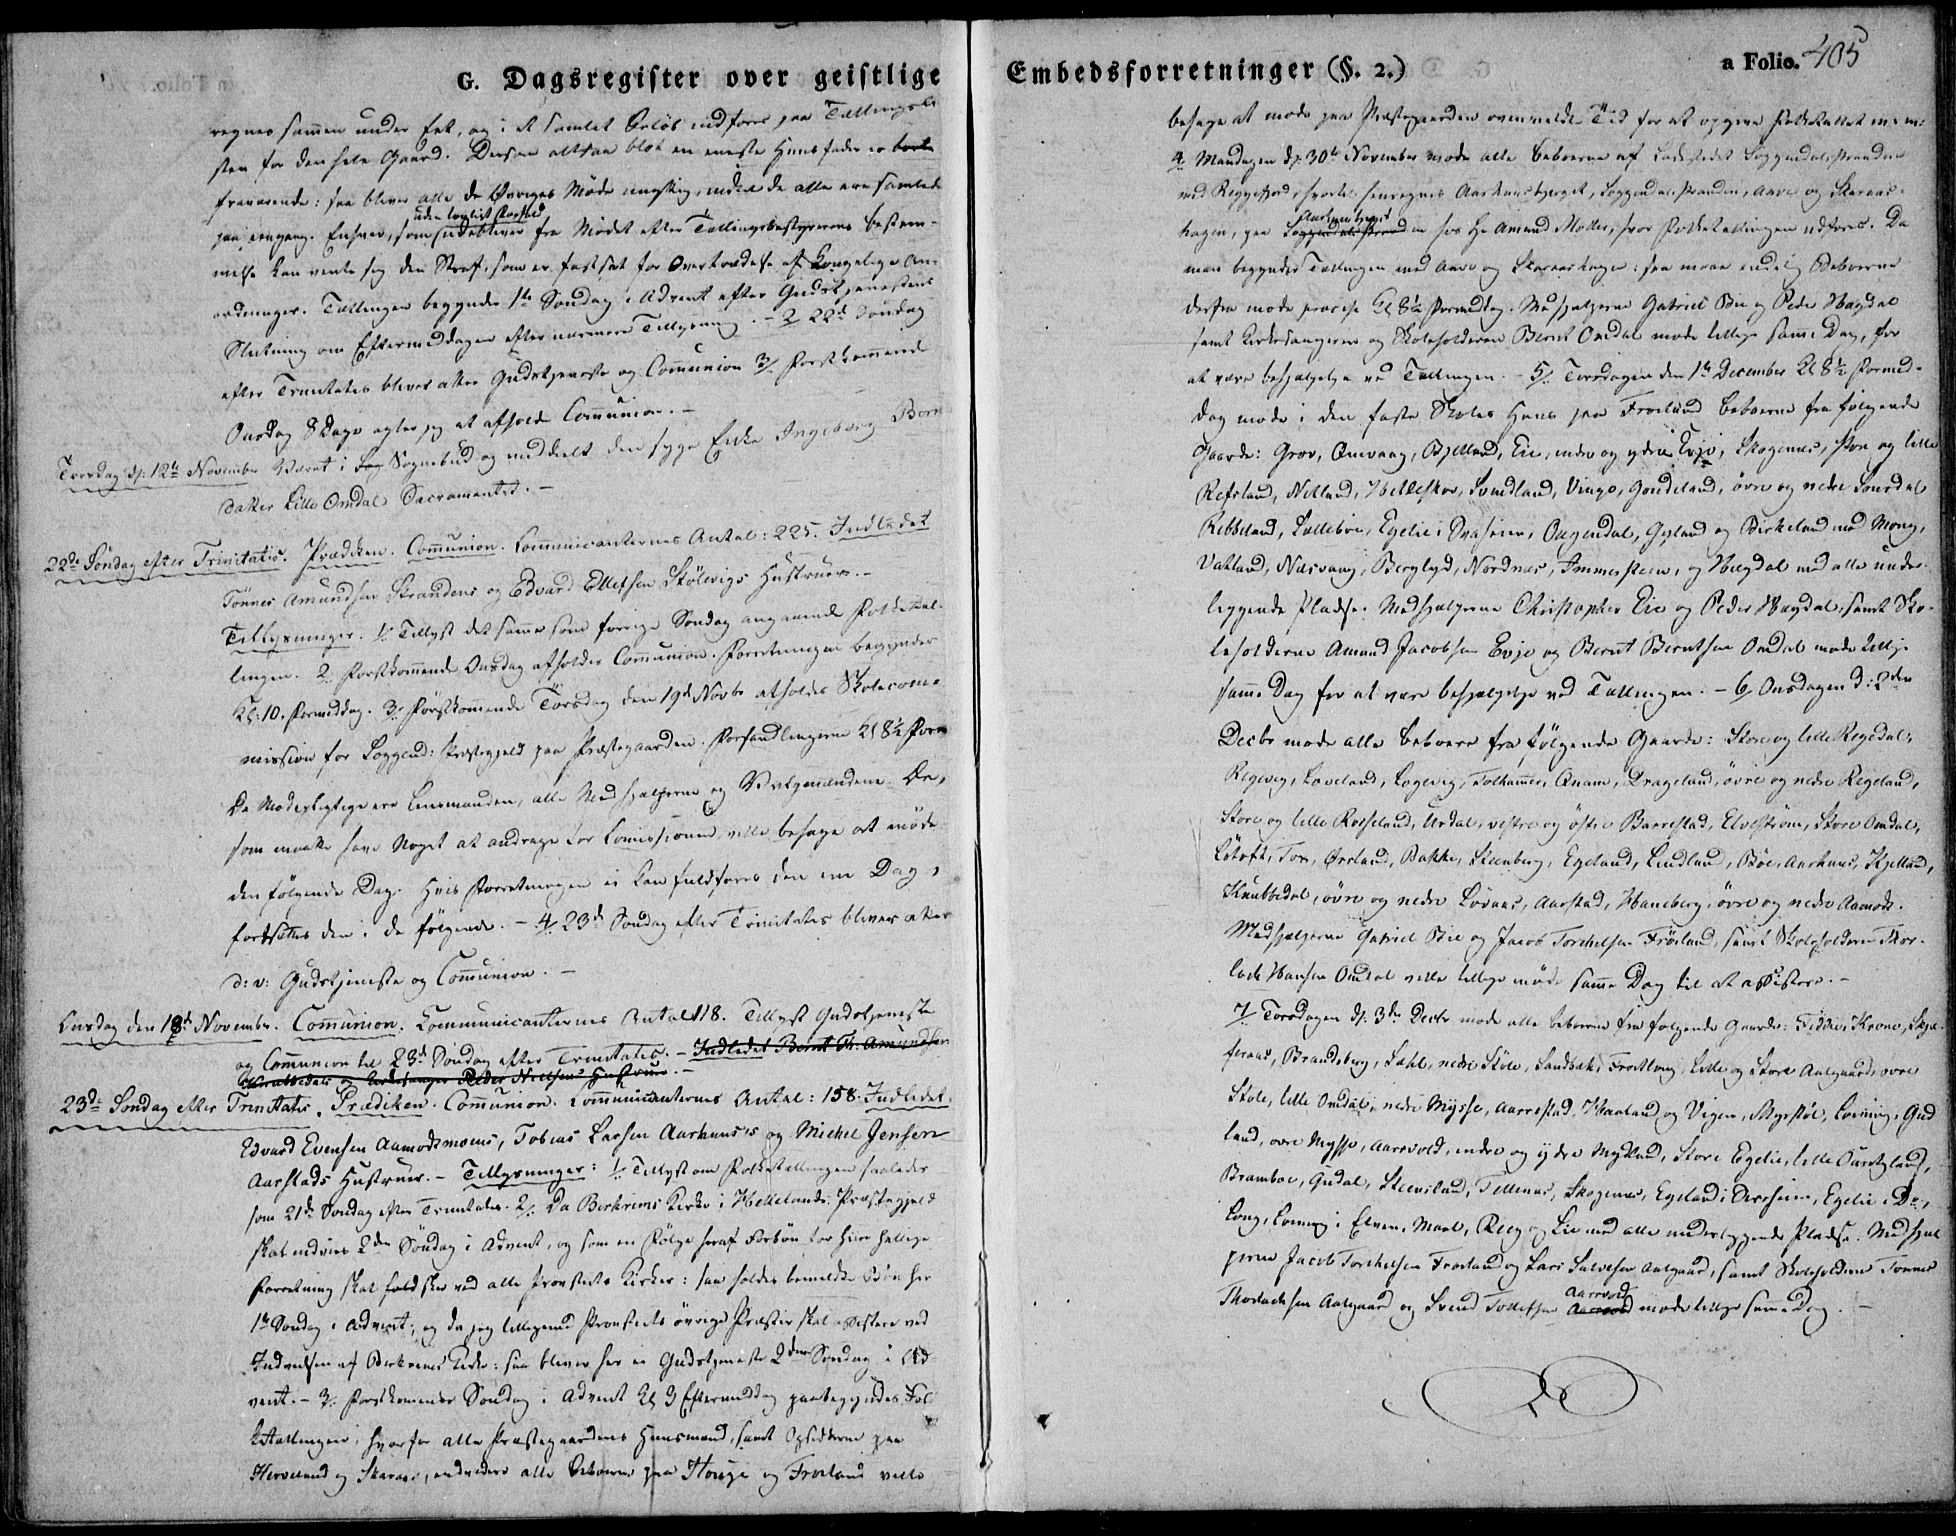 G. Dagsregister over geistlige
regnes sammen under Eet, og i et samlet Beløb indføres paa Tællingsli-
sten for den hele Gaard. Dersom altsaa blot en eneste Huusfader er borte
fraværende: saa bliver alle de Øvriges Møde unyttig, indtil de alle ere samlede
uden lovligt Forfald
paa eengang. Enhver, som udebliver fra Mødet efter Tællingsbestyrerens bestem-
melse kan vente sig den Straf, som er fastsat for Overtrædelse af Kongelige An-
ordninger. Tællingen begynder 1ste Søndag i Advent efter Gudstjenestens
Slutning om Eftermiddagen efter nærmere Tillysning. - 2/ 22de Søndag
efter Trinitatis bliver atter Gudstjeneste og Communion 3/. Førstkommende
Onsdag 8 Dage agter jeg at afholde Communion. -
Torsdag d: 12te November Været i Sognebud og meddeelt den syge Enke Ingeborg Bern
datter Lille Omdal Sacramentet. -
22de Søndag efter Trinitatis. Prædiken. Communion. Communicanternes Antal: 225. Indledet
Tønnes Amundsen Strandens og Edvard Ellefsen Skölevigs Hustruer. -
Tillysninger. 1/. Tillyst det samme som forrige Søndag angaaende Folketæl-
lingen. 2. Førstkommende Onsdag afholdes Communion. Forretningen begynder
Kl: 10. Formiddag. 3/. Førstkommende Torsdag den 19de Novbr afholdes Skolecom-
mission for Soggend: Præstegjeld paa Præstegaarden. Forhandlingerne Kl 8½ Form
De Mødepligtige ere Lensmanden, alle Medhjelperne og Valgmændene. De,
som maatte have Noget at andrage for Commissionen ville behage at møde
den følgende Dag. Hvis Forretningen ei kan fuldføres den ene Dag,
fortsættes den i de følgende. - 4/ 23de Søndag efter Trinitatis bliver atter
d: v: Gudstjeneste og Communion. -
Onsdag den 18de November. Communion. Communicanternes Antal 118. Tillyst Gudstjeneste
og Communion til 23de Søndag efter Trinitatis. - Indledet Bernt Th. Amundsen
Knubedals og Kirkesanger Peder Nielsens Hustruer. -
23de Søndag efter Trinitatis. Prædiken. Communion. Communicanternes Antal: 158. Indledet
Edvard Evensen Aamodsmoens, Tobias Larsen Aarhuus's og Michel Jensen
Aarstads Hustruer. - Tillysninger: 1/. Tillyst om Folketællingen saaledes
som 21de Søndag efter Trinitatis. 2/. Da Berkreims Kirke i Hellelands Præstegjeld
skal indvies 2den Søndag i Advent, og som en Følge heraf Forbøn for hiin hellige
Forretning skal holdes ved alle Provstiets Kirker: saa holdes bemeldte Bøn her
1ste Søndag i Advent; og da jeg tilligemed Provstiets øvrige Præster skal assistere ved
Indvielsen af Berkreims Kirke: saa bliver her ei Gudstjeneste 2den Søndag i Ad-
vent. - 3/. Førstkommende Søndag i Advent Kl 3 Eftermiddag paabegyndes Fol-
ketællingen; hvorfor alle Præstegaardens Huusmænd, samt Opsidderne paa
Kirveland og Skaraas, endvidere alle Beboerne paa Houge og Frøiland ville

Embedsforretninger (§. 2.) a Folio. 405
behage at møde paa Præstegaarden ovenmeldte Tid for at opgive Folketallet m: m:
4. Mandagen d. 30te November møde alle Beboerne af Ladestedet Soggendalsstranden
med Reggefjord, hvortil henregnes Aarhuusbjerget, Soggendalsstranden, Aave og Skaraas-
Aarhuusbjerget
hagen, paa Soggendalsstranden hos Hr Amund Moller, hvor Folketællingen udføres. Da
man begynder Tællingen med Aave og Skaraashagen: saa maae endelig Beboerne
derfra møde præcise Kl 8½ Formiddag. Medhjelperne Gabriel Bie og Peder Hægdal
samt Kirkesangeren og Skoleholderen Bernt Omdal møde tillige samme Dag, for
at være behjelpelige ved Tællingen. - 5/. Tirsdagen den 1ste December Kl 8½ Formid-
dag møde i den faste Skoles Huus paa Frøiland Beboerne fra følgende
Gaarde: Grov, Omvaag, Bjelland, Eie, indre og ydre Evje, Skogenes, store og lille
Refsland, Netland, Helleskov, Svindland, Vinge, Gondeland, övre og nedre Lonsdal
Ribbeland, Lølleboe, Egelie i Draaseim, Augendal, Gyland og Birkeland med Mong,
Vatland, Næsvaag, Berglyd, Nordnæs, Immerstein, og Hægdal med alle under-
liggende Pladse. Medhjelperne Christopher Eie og Peder Hægdal, samt Sko-
leholderne Amund Jacobsen Evje og Bernt Berntsen Omdal møde tillige
samme Dag for at være behjelpelige ved Tællingen. - 6/ Onsdagen d: 2den
Decbr møde alle Beboere fra følgende Gaarde: Store og lille Regedal,
Regevig, Løveland, Logevig, Tolhammer, Anam, Drageland, övre og nedre Regeland,
Store og lille Rosseland, Urdal, vestre og östre Barrestad, Elvestrøm, Store Omdal,
Lötoft, Tor, Orsland, Bakke, Steenberg, Egeland, Lindland, Böe, Aarhuus, Kjelland,
Knubedal, övre og nedre Lövaas, Aarstad, Haneberg, övre og nedre Aamodt.
Medhjelperne Gabriel Bie og Jacob Torkelsen Frøiland, samt Skoleholderen Thor-
lack Hansen Omdal ville tillige møde samme Dag til at assistere. -
7/ Torsdagen d. 3die Decbr møde alle Beboerne fra følgende Gaarde: Fidje, Krone, Skje-
feraas, Brandsberg, Sahl, nedre Skole, Sandbæk, Frøitlong, Lille og Store Aalgaard, övre
Skole, lille Omdal, nedre Mysse, Aarrestad, Haaland og Vigen, Myrstöl, Lovning, Gud
land, övre Mysse, Aarsvold, indre og ydre Mydland, Store Egelie, lille Ourdyland,
Bramboe, Gudal, Steensland, Tellenæs, Skogenæs, Egeland i Orrestein, Egelie i Do-
long, Lonning i Elven, Moel, Reeg og Lie med alle underliggende Pladse. Medhjel-
perne Jacob Torkelsen Frøiland og Lars Salvesen Aalgaard, samt Skoleholderne Tønnes
Aarsvold
Thorlachsen Aalgaard og Svend Tollefsen Aarsvold møde tillige samme Dag. -